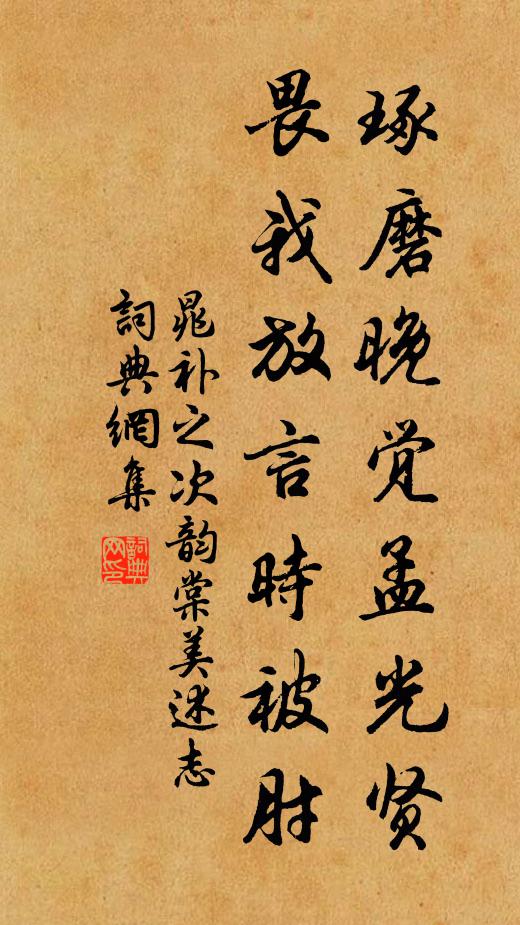 琢磨晚觉孟光贤
畏我放言時被肘
晁补之次韵棠美述志
詞典網集
詞典网印